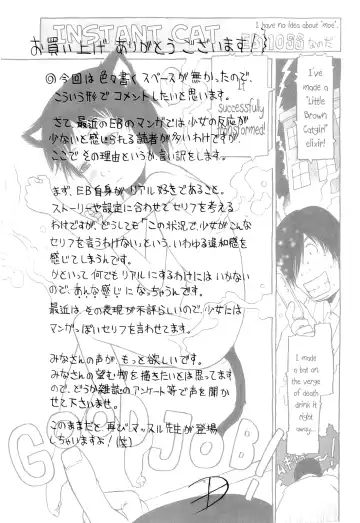 I have no idea about "moe".
INSTANT CAT
お買い上げ ありがとうございます!!
◎今回は色々書くスペースが無かったので、
こういう形でコメントしたいと思います。
さて、最近のEBのマンガでは少女の反応が
少ないと感じられる読者が多いわけですが
ここで その理由というか言い訳をします。
まず、EB自身がリアル好きであること。
ストーリーや設定に合わせてセリフを考える
わけですが、どうしても「この状況で、少女がこんな
セリフを言うわけない」という、いわゆる違和感を
感じてしまうんです。
かといって何でもリアルにするわけには いかない
ので、あんな感じに なっちゃうんです。
最近は その表現が不評らしいので、少女には
マンガっぽいセリフを言わせてます。
みなさんの声が、もっと欲しいです。
みなさんの望む物を描きたいとは思ってます
ので、どうか雑誌のアンケート等で声を聞か
せて下さいませ。
このままだと 再びマッスル先生が登場
しちゃいますよ!(笑)
It
successfully
transformed!
I've
made a
"Little
Brown
Catgirl"
elixir!
I made
a bat on
the verge
of death
drink it
right
away...
GOOD JOB!